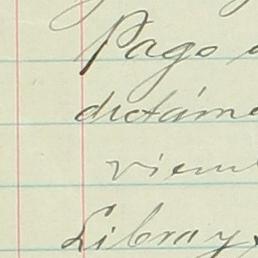 Pago
dictáme
viem
Libray